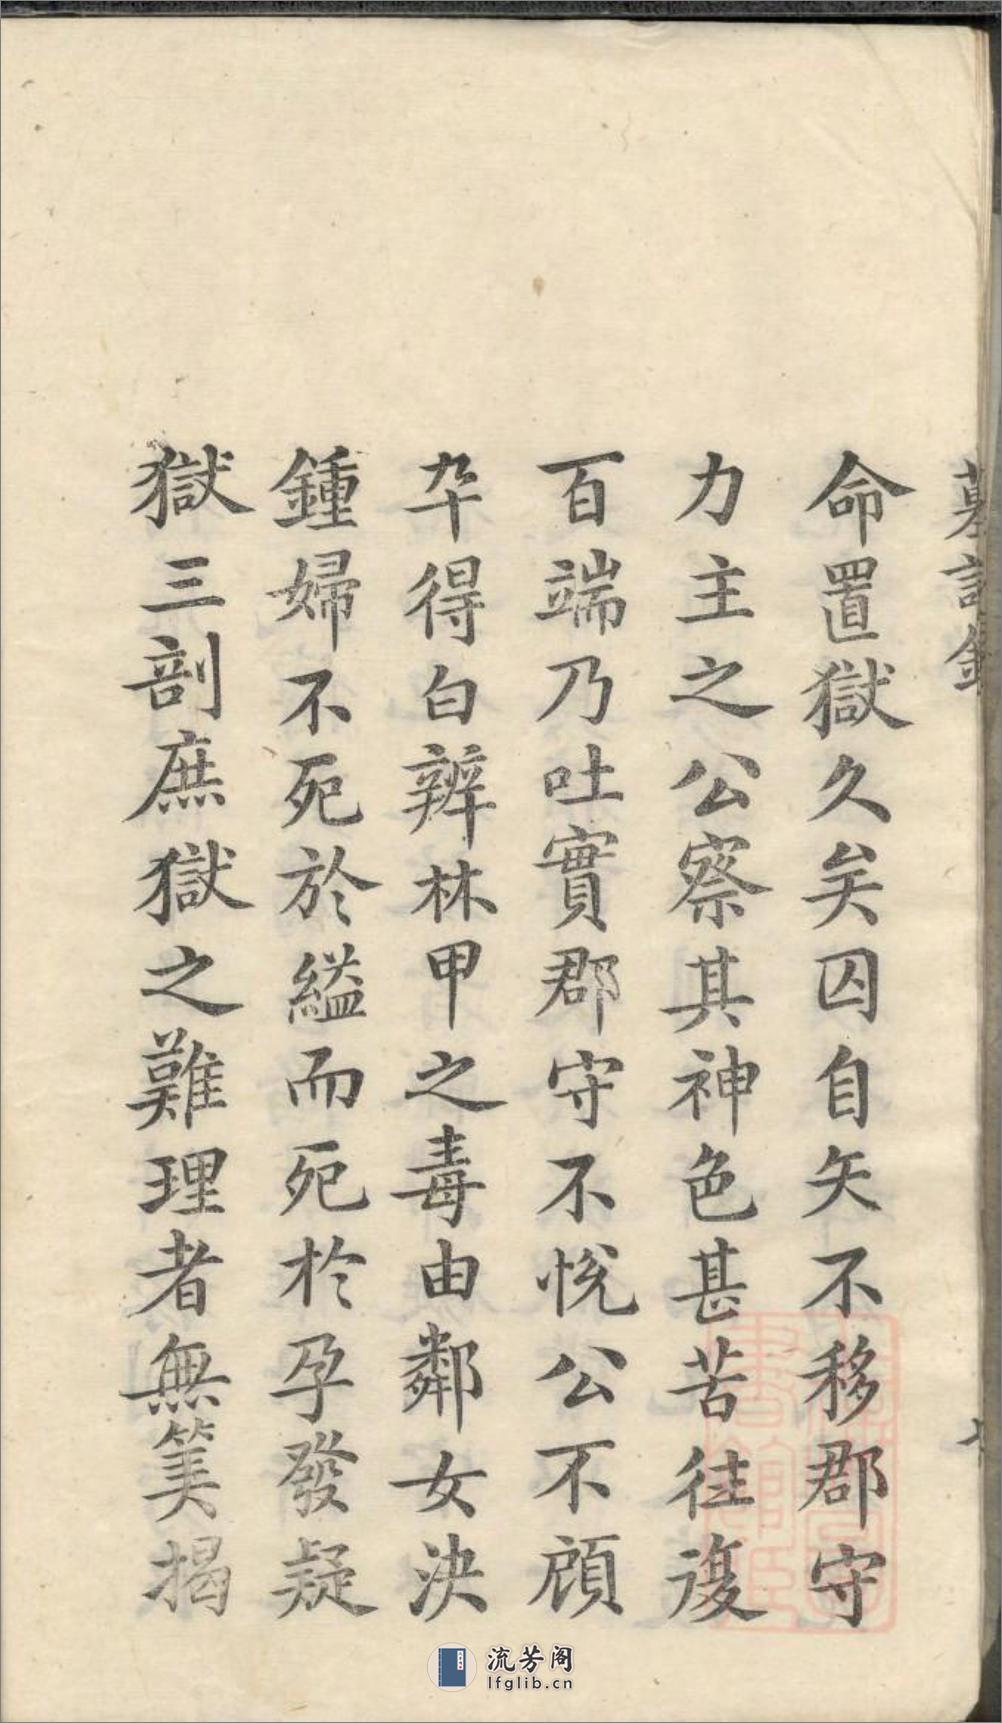 命置獄久矣囚自矢不移郡守
力主之公察其神色甚苦往復
百端乃吐實郡守不悅公不顧
卒得白辨林甲之毒由鄰女決
鍾婦不死於縊而死於孕發疑
獄三剖庶獄之難理者無筭揭
流芳阁
lfglib.cn